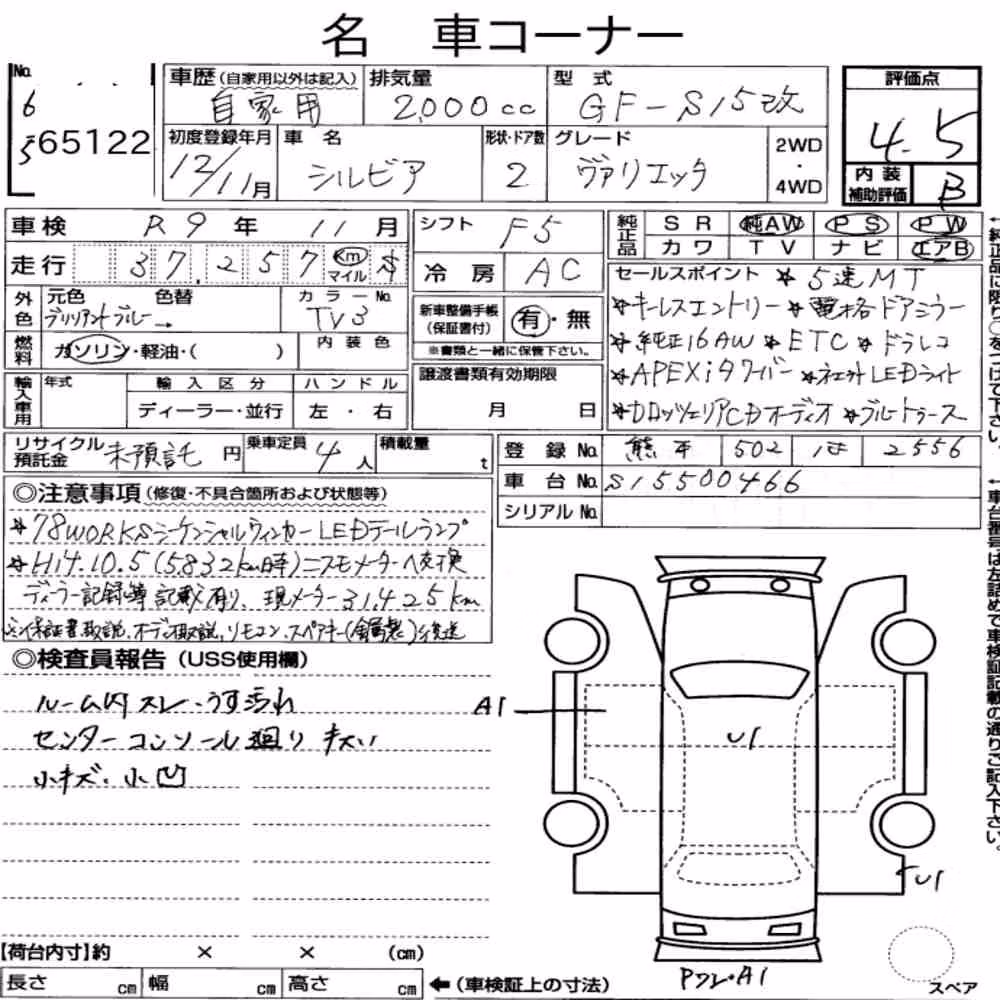 名 車コーナー
No. 6
5 65122
車歴 (自家用以外は記入) 自家用
排気量 2,000cc
型式 GF-S15改
評価点 4.5
内装補助評価 B
初度登録年月 12/11月
車名 シルビア
形状・ドア数 2
グレード ヴァリエッタ
2WD・4WD
車検 R9年 11月
シフト F5
純正品 SR 純AW PS PW
カワ TV ナビ エアB
走行 37,257 km マイル $
冷房 AC
セールスポイント ☆5速MT
☆キーレスエントリー ☆電格ドアミラー
☆純正16AW ☆ETC ☆ドラレコ
☆APEXiタワーバー ☆ LEDライト
☆カロッツェリアCDオーディオ ☆ブルートゥース
外色 元色 色替 カラーNo.
ブリリアントブルー→ TV3
内装色
新車整備手帳(保証書付) 有・無
※書類と一緒に保管下さい。
燃料 ガソリン・軽油・( )
譲渡書類有効期限
月 日
輸入車用 年式 輸入区分 ハンドル
ディーラー・並行 左・右
リサイクル預託金 未預託 円
乗車定員 4人
積載量 t
登録No. 熊本 502 ほ 2556
車台No. S15500466
シリアルNo.
◎注意事項 (修復・不具合箇所および状態等)
☆78WORKSシーケンシャルウィンカーLEDテールランプ
☆H14.10.5(5,832km時)ニスモメーターへ交換
ディーラー記録簿記載有り、現メーター31,425km
保証書、取説、オーディオ取説、リモコン、スペアキー 後送
◎検査員報告 (USS使用欄)
ルーム内スレ・うす汚れ
センターコンソール廻りキズ
小キズ・小凹
A1
U1
U1
Pフレ・A1
スペア
【荷台内寸】約 × × (cm)
長さ cm 幅 cm 高さ cm
←(車検証上の寸法)
←純正品に限り○をつけて下さい。
←車台番号は左詰めで車検証記載の通りご記入下さい。